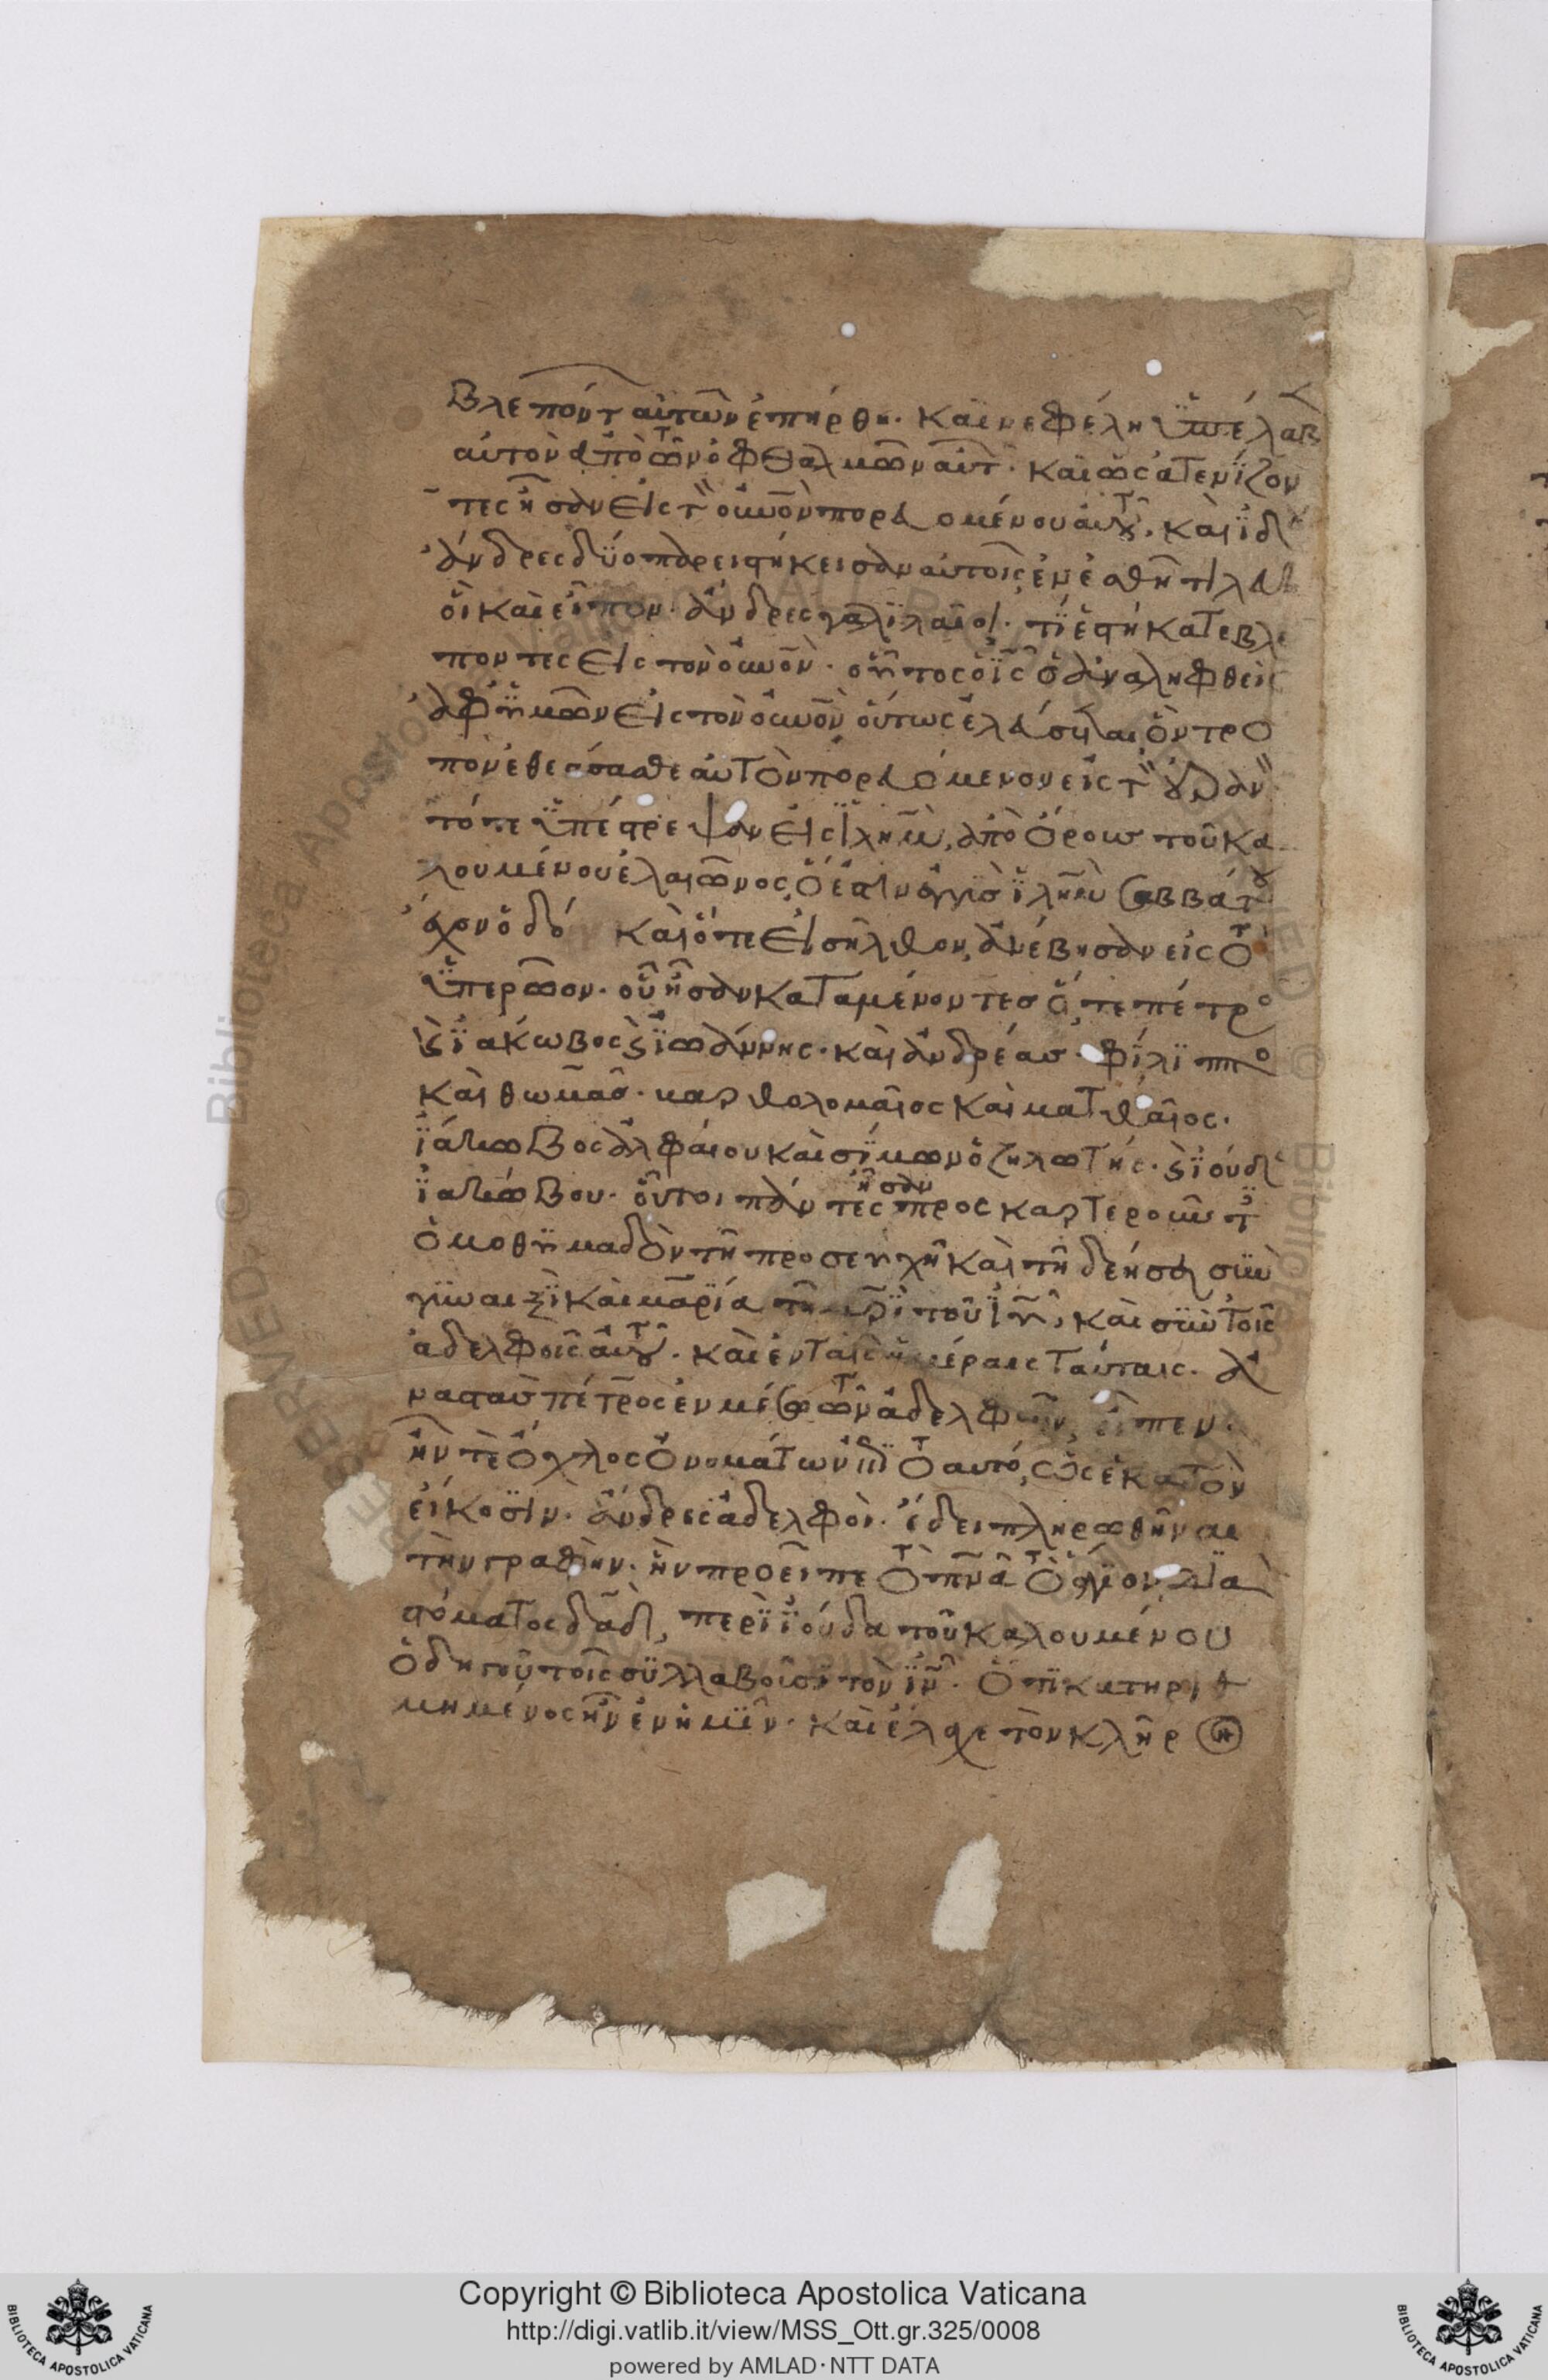 βλεπόντ αὐτῶν ἐπήρθη· καὶ νεφέλη ὑπέλαβ
αὐτὸν ἀπὸ τῶν ὀφθαλμῶν αὐτ· καὶ ὡς ἀτενίζον
τες ἦσαν εἰς τ οὐνὸν πορευομένου αὐτοῦ· καὶ ἰδ
ἄνδρες δύο παρειστήκεισαν αὐτοῖς ἐν ἐσθῆτι λευ
οἳ καὶ εἶπον· ἄνδρες γαλιλαῖοι· τί ἑστήκατε βλε
ποντες εἰς τὸν οὐνὸν· οὗτος ὁ ις ὁ ἀναληφθεὶς
ἀφ ὑμῶν εἰς τὸν οὐνὸν οὕτως ἐλεύσεται, ὃν τρο
πον ἐθεάσασθε αὐτὸν πορευόμενον εἰς τ οὐναν
τότε ὑπέστρεψαν εἰς ιλημ, ἀπὸ ὄρους τοῦ κα
λουμένου ἐλαιῶνος, ὅ ἐστιν ἐγγὺς ιλημ σαββάτου
ἔχον ὁδό καὶ ὅτε εἰσῆλθον, ἀνέβησαν εἰς τὸ
ὑπερῶον· οὗ ἦσαν καταμένοντες ὅ, τε πέτρο
καὶ ἰάκωβος καὶ ἰωάννης· καὶ ἀνδρέας· φίλιππο
καὶ θωμᾶς· βαρθολομαῖος καὶ ματθαῖος·
ἰάκωβος ἀλφαίου καὶ σίμων ὁ ζηλωτής· καὶ ἰούδ
ἰακώβου· οὗτοι πάντες ἦσαν προσκαρτεροῦντ
ὁμοθυμαδὸν τῇ προσευχῇ καὶ τῇ δεήσει σὺν
γυναιξὶ καὶ μαρία τῇ μρὶ τοῦ ιυ, καὶ σὺν τοῖς
ἀδελφοῖς αὐτοῦ· καὶ ἐν ταῖς ἡμέραις ταύταις· ἀ
ναστὰς πέτρος ἐν μέσω τῶν ἀδελφῶν, εἶπεν·
ἦν τὲ ὄχλος ὀνομάτων ἐπὶ τὸ αυτό, ὡς ἑκατὸν
εἴκοσιν· ἄνδρες ἀδελφοὶ· ἔδει πληρωθῆναι
τὴν γραφὴν· ἣν προεῖπε τὸ πνα τὸ ἅγιον διὰ
στόματος δαδ, περὶ ἰούδα τοῦ καλουμένου
ὁδηγοῦ τοῖς συλλαβοῦσι τὸν ιν· ὅτι κατηριθ
μημένος ἦν ἐν ἡμῖν· καὶ ἔλαχε τὸν κλῆρ
Copyright © Biblioteca Apostolica Vaticana
http://digi.vatlib.it/view/MSS_Ott.gr.325/0008
powered by AMLAD·NTT DATA